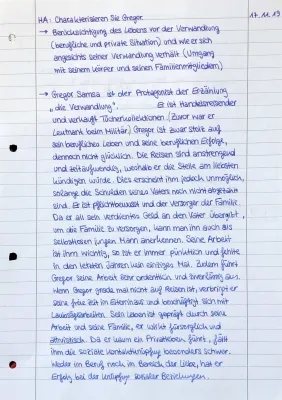 HA: Charakterisieren Sie Gregor. 17.11.19
→ Berücksichtigung des Lebens vor der Verwandlung
(berufliche und private Situation) und wie er sich
angesichts seiner Verwandlung verhält (Umgang
mit seinem Körper und seinen Familienmitgliedern)
→ Gregor Samsa ist der Protagonist der Erzählung
„die Verwandlung". Er ist Handelsreisender
und verkauft Tuchkollektionen. (Zuvor war er
Leutnant beim Militär) Gregor ist zwar stolz auf
sein berufliches Leben und seine beruflichen Erfolge,
dennoch nicht glücklich. Die Reisen sind anstrengend
und zeitaufwendig, weshalb er die Stelle am liebsten
kündigen würde. Dies erscheint ihm jedoch unmöglich,
solange die Schulden seines Vaters noch nicht abgezahlt
sind. Er ist pflichtbewusst und der Versorger der Familie.
Da er all sein verdientes Geld an den Vater übergibt,
um die Familie zu versorgen, kann man ihn auch als
selbstlosen jungen Mann anerkennen. Seine Arbeit
ist ihm wichtig, so ist er immer pünktlich und fehlte
in den letzten Jahren kein einziges Mal. Zudem führt
Gregor seine Arbeit sehr ordentlich und zuverlässig aus.
Wenn Gregor grade mal nicht auf Reisen ist, verbringt er
seine freie Zeit im Elternhaus und beschäftigt sich mit
Laubsägearbeiten. Sein Leben ist geprägt durch seine
Arbeit und seine Familie, er wirkt fürsorglich und
altruistisch. Da er kaum ein Privatleben führt, fällt
ihm die soziale Kontaktknüpfung besonders schwer.
Weder im Beruf noch im Bereich der Liebe, hat er
Erfolg bei der Knüpfung sozialer Beziehungen.